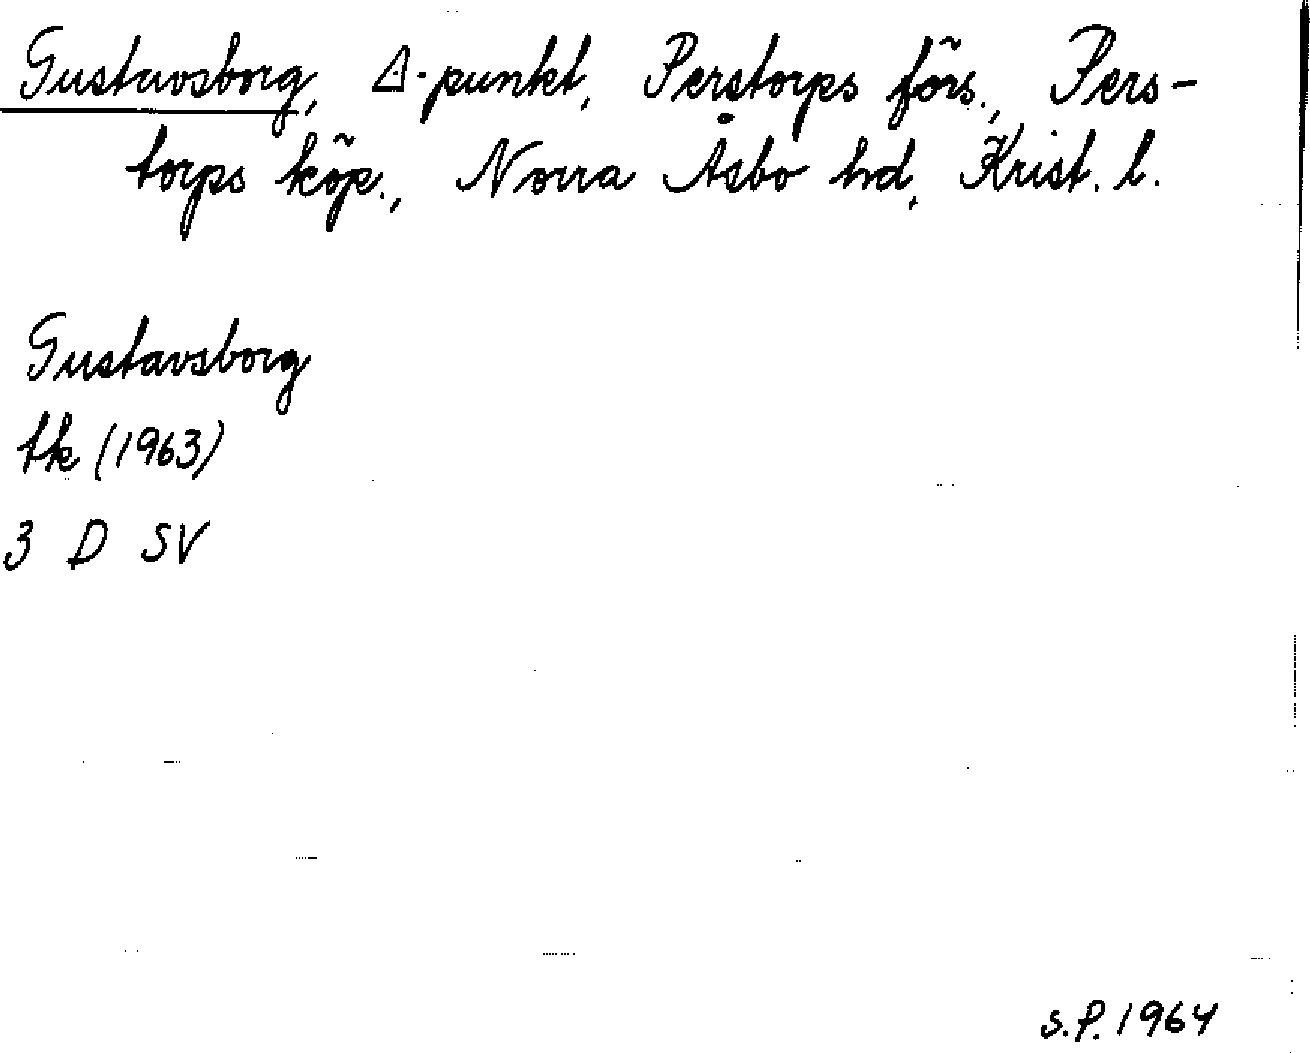 Gustavsborg, △-punkt, Perstorps förs., Pers-
torps köp., Norra Åsbo hd, Krist. l.
Gustavsborg
tk (1963)
3 D SV
S.P. 1964